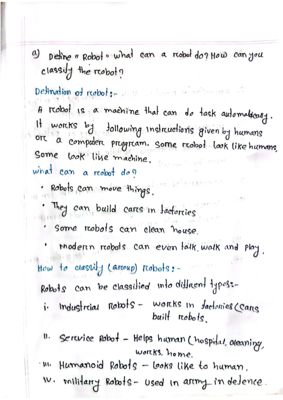 a) Define "Robot" what can a robot do? How can you
classify the robot?
Defination of robot:-
A robot is a machine that can do task automatically.
It works by following instructions given by humans
or a computer program. Some robot look like humans,
Some look like machine.
what can a robot do?
• Robots can move things.
• They can build cars in factories
• some robots can clean house.
• modern robots can even talk, walk and play.
How to classify (Group) Robots:-
Robots can be classified into different types:-
i. Industrial Robots - works in factories (cars
built robots.
ii. Service Robot - Helps human (hospital, cleaning,
works, home.
iii. Humanoid Robots - looks like to human.
iv. military Robots - used in army in defence.